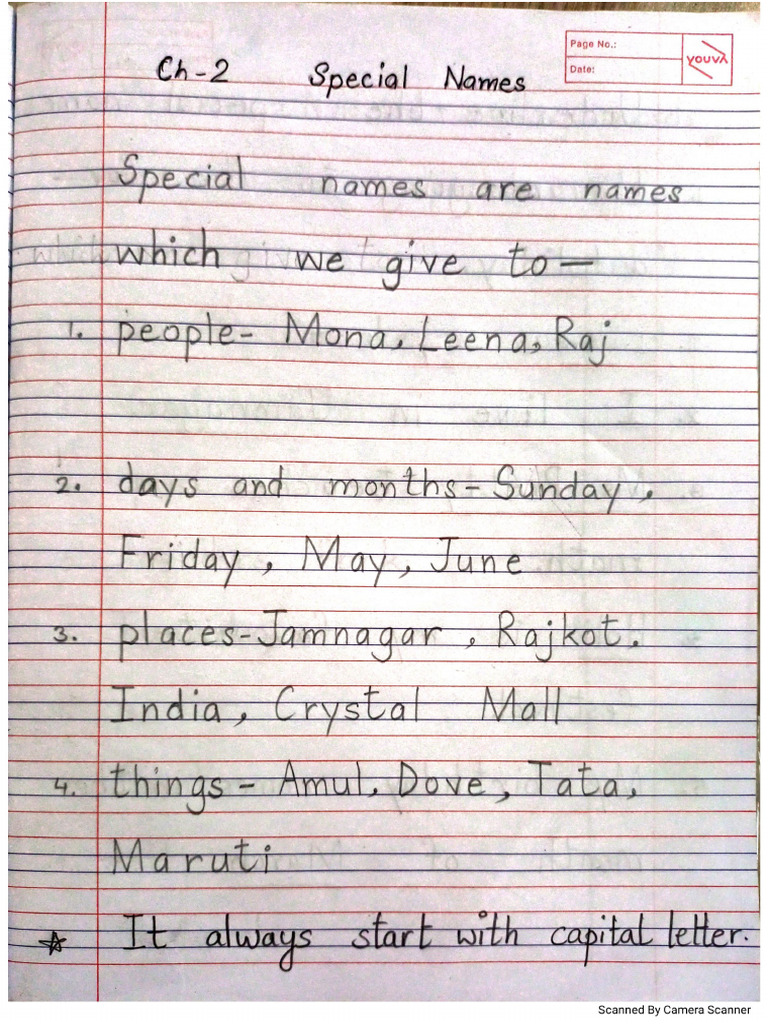 Page No.:
Date:
YOUVA
Ch-2 Special Names
Special names are names
which we give to—
1. people- Mona, Leena, Raj
2. days and months- Sunday,
Friday, May, June
3. places-Jamnagar, Rajkot.
India, Crystal Mall
4. things- Amul, Dove, Tata,
Maruti
☆ It always start with capital letter.
Scanned By Camera Scanner